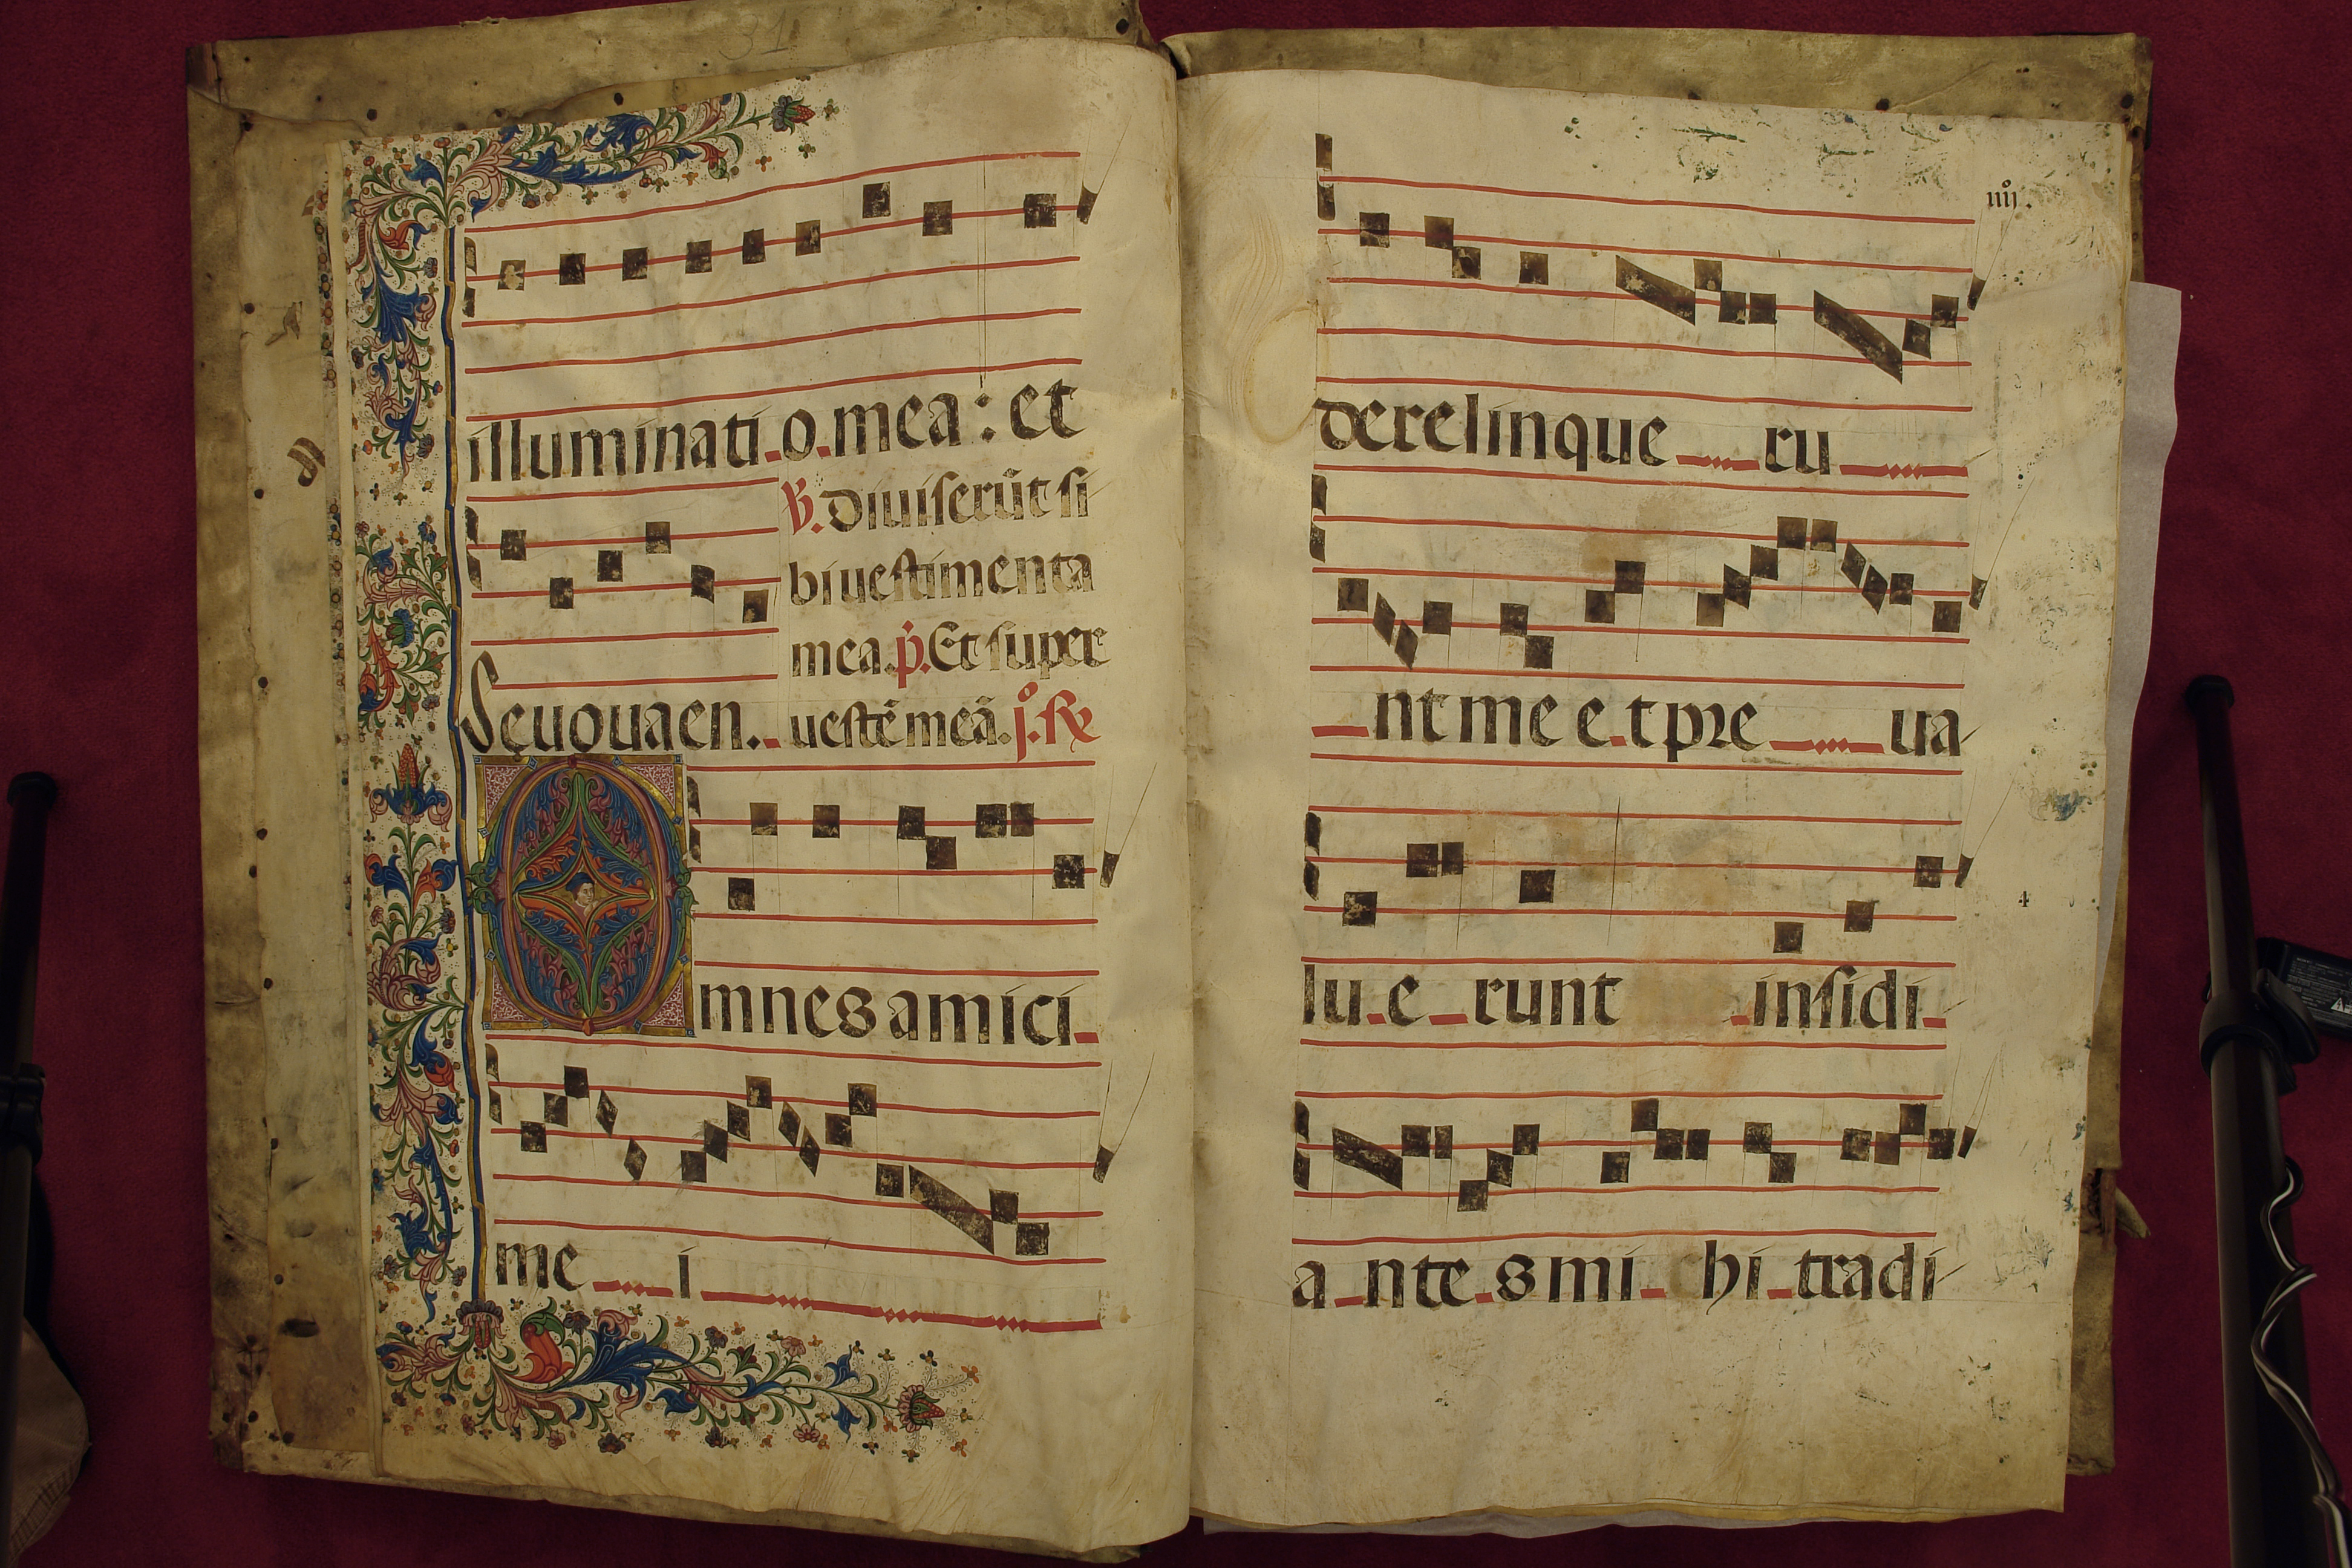 31
illuminati o mea : et
℣. diuiserūt si
bi uestimenta
mea. p̄. Et super
Seuouaen. uestē meā. jº. ℟
Omnes amici
me i
iiijº.
derelinque ru
nt me e t pre ua
lu e runt insidi
4
a nte s mi hi tradi